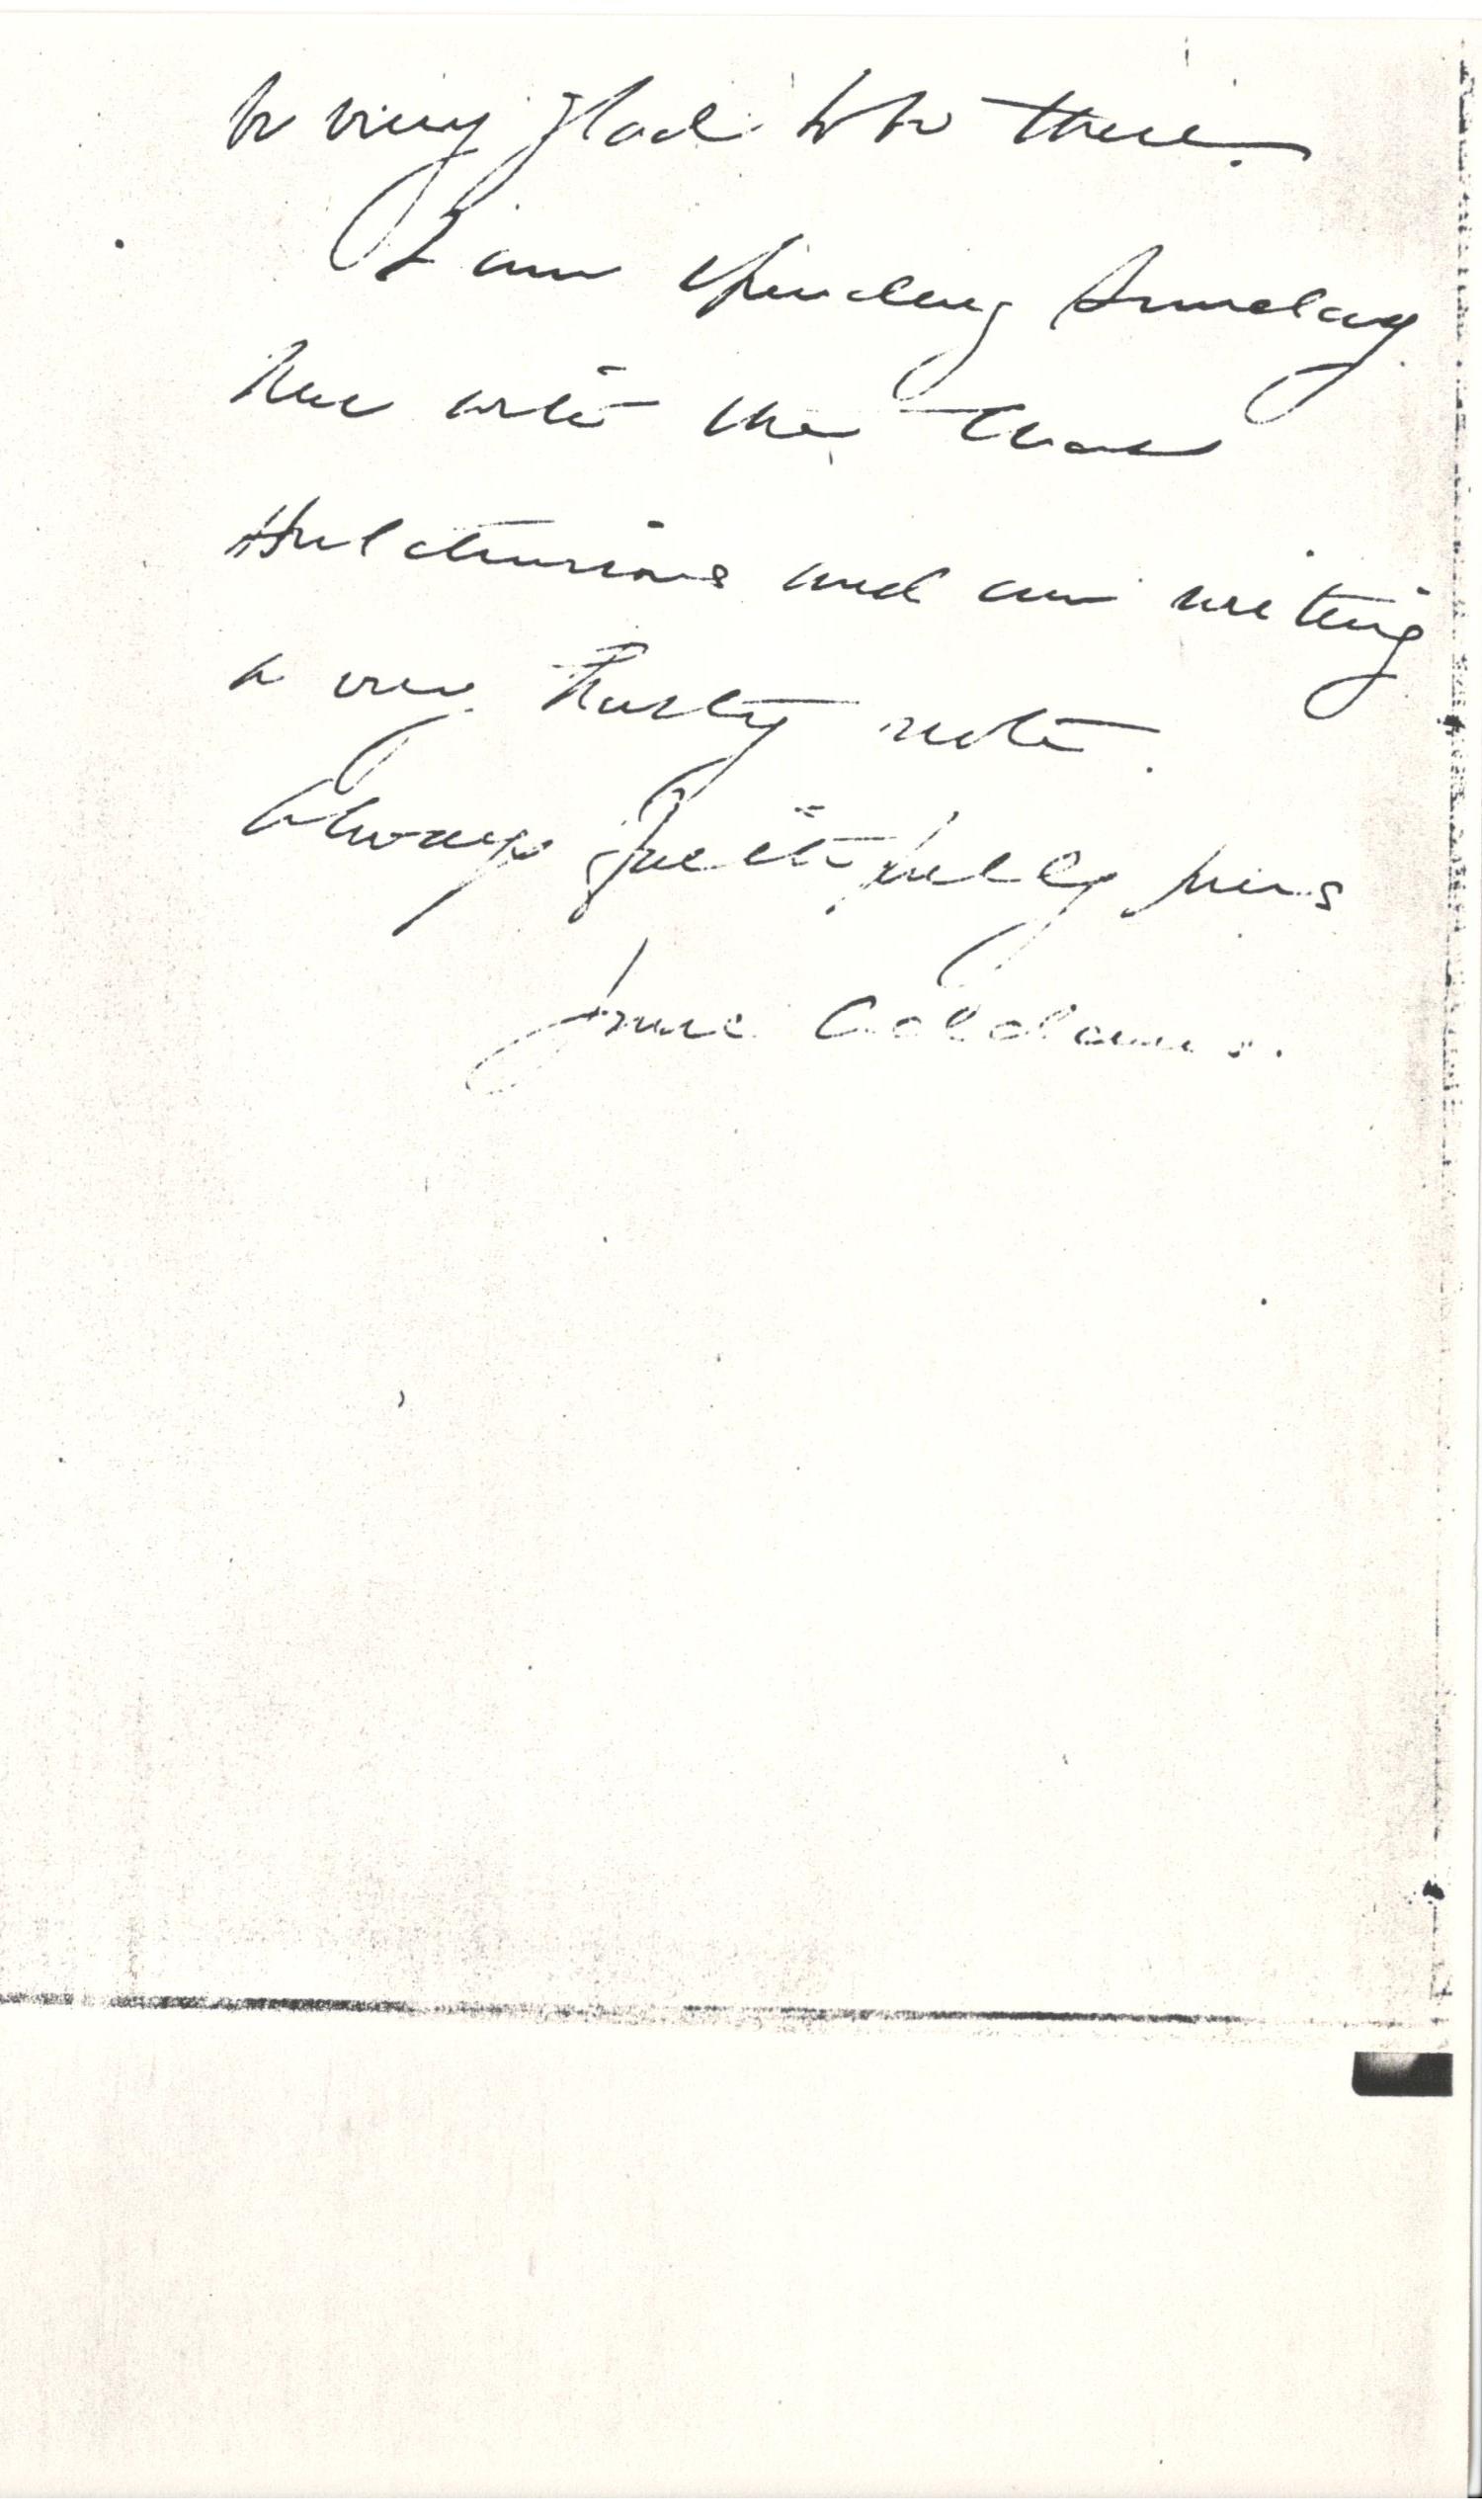 be very glad to be there.
I am spending Sunday
here with the Chas
Hutchinsons and am writing
a very hasty note.
Always faithfully yours
Jane Addams.